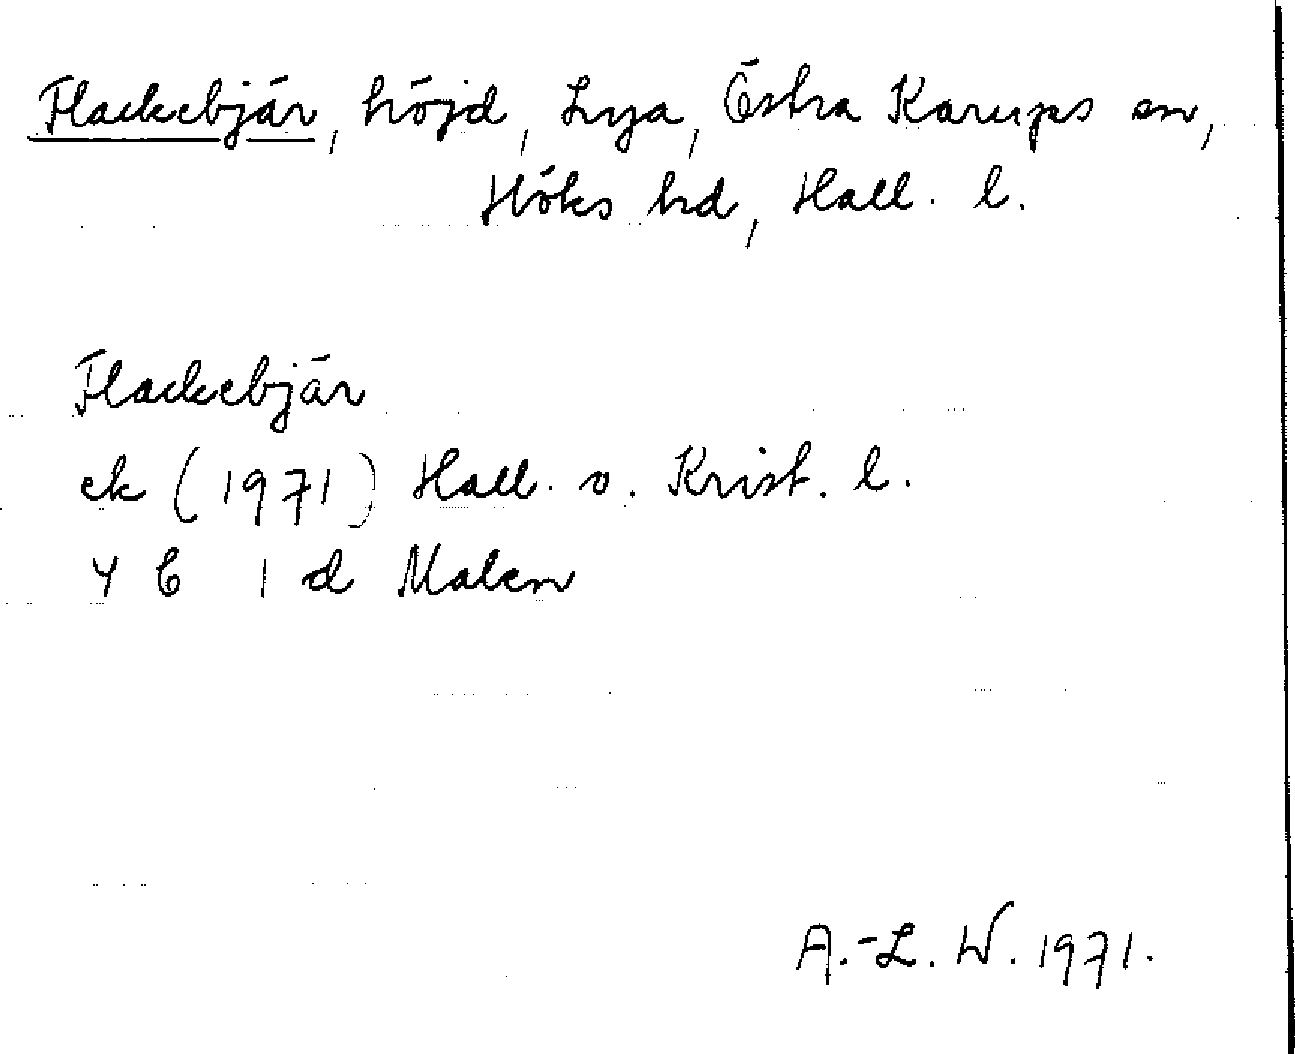 Flackebjär, höjd, Lya, Östra Karups sn,
Höks hd, Hall. l.
Flackebjär
ek (1971) Hall. o. Krist. l.
4 C 1 d Malen
A.-L. W. 1971.